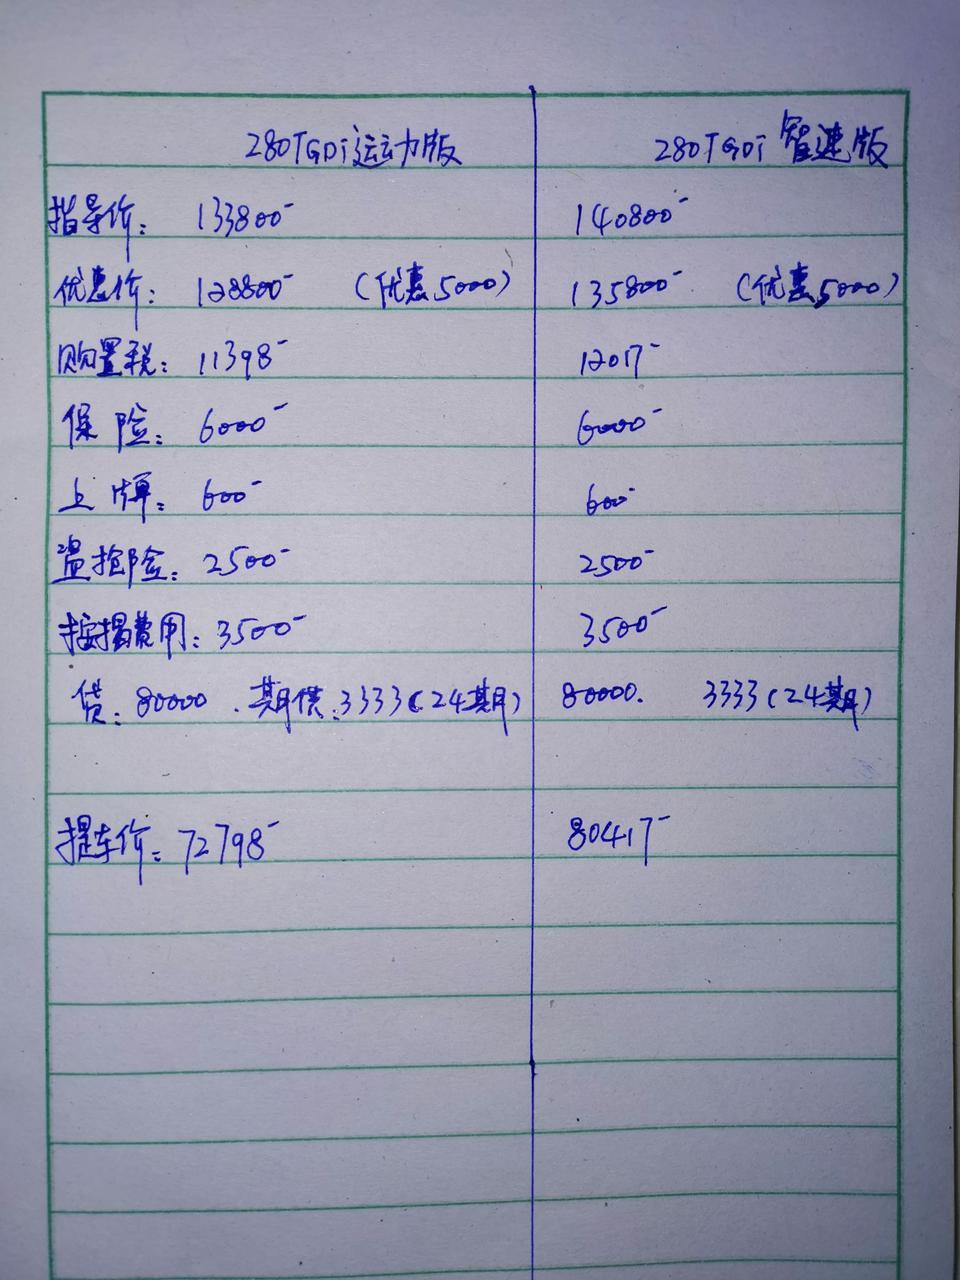 280TGDi运动版 280TGDi 智速版
指导价: 133800- 140800-
优惠价: 128800- (优惠5000) 135800- (优惠5000)
购置税: 11398- 12017-
保险: 6000- 6000-
上牌: 600- 600-
盗抢险: 2500- 2500-
按揭费用: 3500- 3500-
贷: 80000 . 期供:3333(24期) 80000. 3333(24期)
提车价: 72798- 80417-